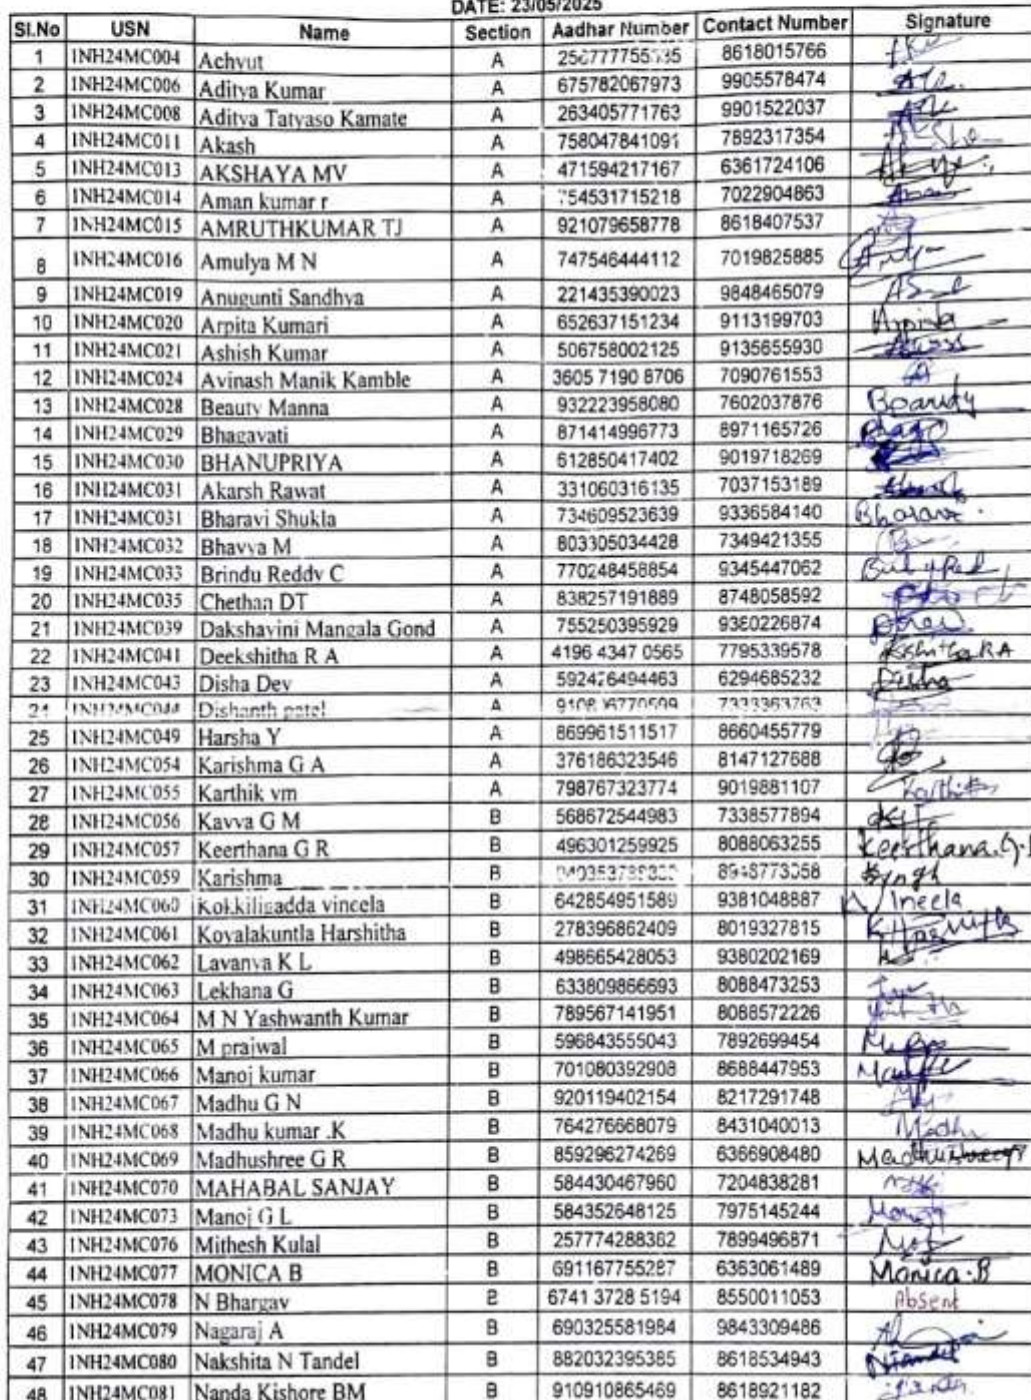 DATE: 23/05/2025
Sl.No USN Name Section Aadhar Number Contact Number Signature
1 1NH24MC004 Achyut A 8618015766
2 1NH24MC006 Aditya Kumar A 675782067973 9905578474
3 1NH24MC008 Aditya Tatyaso Kamate A 263405771763 9901522037
4 1NH24MC011 Akash A 758047841091 7892317354
5 1NH24MC013 AKSHAYA MV A 471594217167 6361724106
6 1NH24MC014 Aman kumar r A 7022904863
7 1NH24MC015 AMRUTHKUMAR TJ A 921079658778 8618407537
8 1NH24MC016 Amulya M N A 747546444112 7019825885
9 1NH24MC019 Anugunti Sandhya A 221435390023 9848465079
10 1NH24MC020 Arpita Kumari A 652637151234 9113199703
11 1NH24MC021 Ashish Kumar A 506758002125 9135655930
12 1NH24MC024 Avinash Manik Kamble A 3605 7190 8706 7090761553
13 1NH24MC028 Beauty Manna A 932223958080 7602037876
14 1NH24MC029 Bhagavati A 871414996773 8971165726
15 1NH24MC030 BHANUPRIYA A 612850417402 9019718269
16 1NH24MC031 Akarsh Rawat A 331060316135 7037153189
17 1NH24MC031 Bharavi Shukla A 734609523639 9336584140
18 1NH24MC032 Bhavya M A 803305034428 7349421355
19 1NH24MC033 Brindu Reddy C A 770248458854 9345447062
20 1NH24MC035 Chethan DT A 838257191889 8748058592
21 1NH24MC039 Dakshayini Mangala Gond A 755250395929 9380226874
22 1NH24MC041 Deekshitha R A A 4196 4347 0565 7795339578
23 1NH24MC043 Disha Dey A 592426494463 6294685232 Disha
24 1NH24MC044 Dishanth patel A 7333363763
25 1NH24MC049 Harsha Y A 869961511517 8660455779
26 1NH24MC054 Karishma G A A 376186323546 8147127688
27 1NH24MC055 Karthik vm A 798767323774 9019881107
28 1NH24MC056 Kavya G M B 568672544983 7338577894
29 1NH24MC057 Keerthana G R B 496301259925 8088063255 Keerthana.G.
30 1NH24MC059 Karishma B 8948773058 Syngh
31 1NH24MC060 Kokkiligadda vineela B 642854951589 9381048887 Vineela
32 1NH24MC061 Koyalakuntla Harshitha B 278396862409 8019327815
33 1NH24MC062 Lavanya K L B 498665428053 9380202169
34 1NH24MC063 Lekhana G B 633809866693 8088473253
35 1NH24MC064 M N Yashwanth Kumar B 789567141951 8088572226
36 1NH24MC065 M prajwal B 596843555043 7892699454
37 1NH24MC066 Manoj kumar B 701080392908 8688447953
38 1NH24MC067 Madhu G N B 920119402154 8217291748
39 1NH24MC068 Madhu kumar .K B 764276668079 8431040013 Madhu
40 1NH24MC069 Madhushree G R B 859296274269 6366908480 Madhushree
41 1NH24MC070 MAHABAL SANJAY B 584430467960 7204838281
42 1NH24MC073 Manoj G L B 584352648125 7975145244
43 1NH24MC076 Mithesh Kulal B 257774288362 7899496871
44 1NH24MC077 MONICA B B 691167755287 6363061489 Monica.B
45 1NH24MC078 N Bhargav B 6741 3728 5194 8550011053 Absent
46 1NH24MC079 Nagaraj A B 690325581984 9843309486
47 1NH24MC080 Nakshita N Tandel B 882032395385 8618534943
48 1NH24MC081 Nanda Kishore BM B 910910865469 8618921182